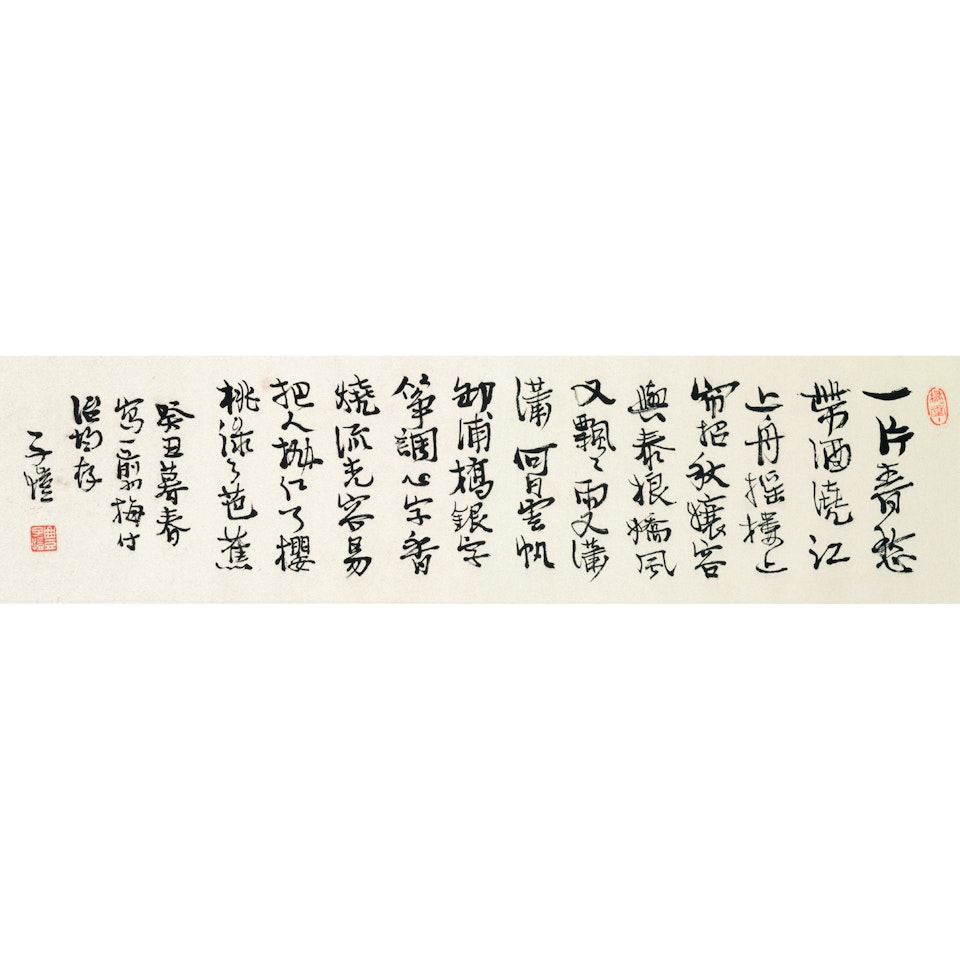 一片春愁
帶酒澆江
上舟搖樓上
帘招秋孃容
與泰娘嬌風
又飄〻雨又瀟
瀟何日雲帆
卸浦橋銀字
箏調心字香
燒流光容易
把人拋紅了櫻
桃綠了芭蕉
癸丑暮春
寫一翦梅付
治均存
子愷
豐子愷